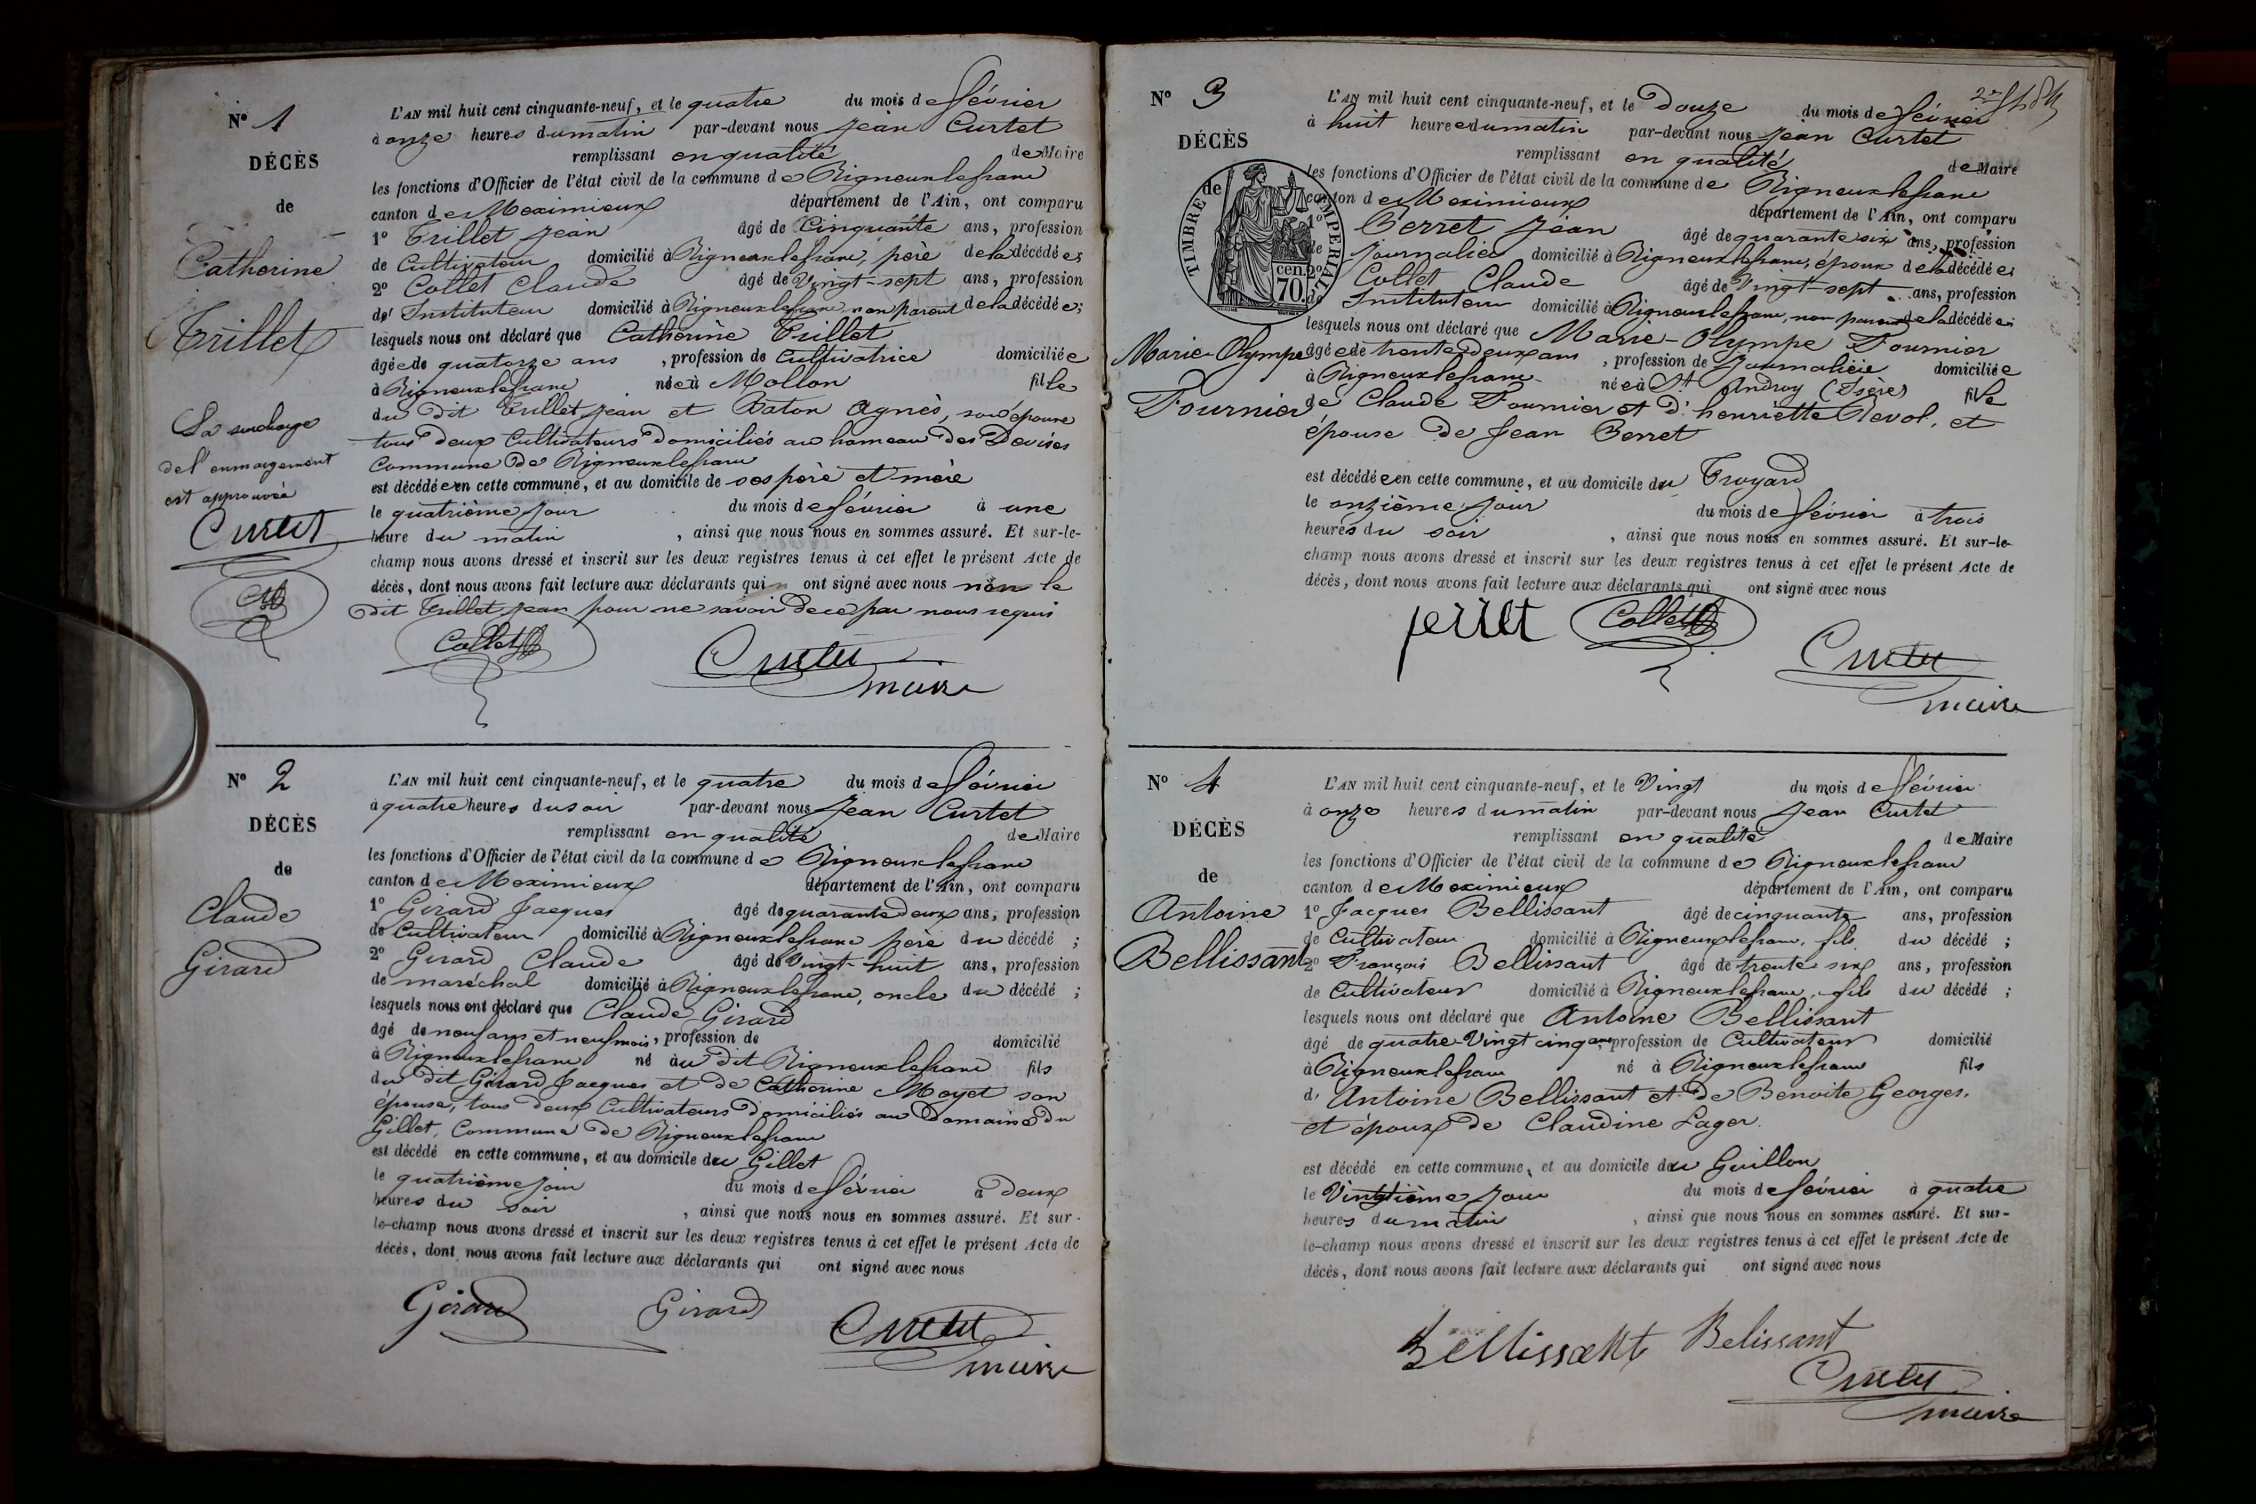 N° 1
DÉCÈS
de
Catherine
Trillet
La surcharge
de l'enmargement
est approuvée
Curtet
L'AN mil huit cent cinquante-neuf, et le quatre du mois de février
à onze heures du matin par-devant nous Jean Curtet
remplissant en qualité de Maire
les fonctions d'Officier de l'état civil de la commune de Rigneux le franc
canton de Meximieux département de l'Ain, ont comparu
1° Trillet Jean âgé de Cinquante ans, profession
de Cultivateur domicilié à Rigneux le franc, père de la décédée;
2° Collet Claude âgé de Vingt-sept ans, profession
de Instituteur domicilié à Rigneux le franc, non parent de la décédée;
lesquels nous ont déclaré que Catherine Trillet
âgée de quatorze ans, profession de Cultivatrice domiciliée
à Rigneux le franc née à Mollon fille
du dit Trillet Jean et Baton Agnès, son épouse
tous deux Cultivateurs domiciliés au hameau des Devises
Commune de Rigneux le franc
est décédée en cette commune, et au domicile de ses père et mère
le quatrième jour du mois de février à une
heure du matin, ainsi que nous nous en sommes assuré. Et sur-le-
champ nous avons dressé et inscrit sur les deux registres tenus à cet effet le présent Acte de
décès, dont nous avons fait lecture aux déclarants qui ont signé avec nous non le
dit Trillet Jean pour ne savoir de ce par nous requis
Collet Curtet
maire
N° 2
DÉCÈS
de
Claude
Girard
L'AN mil huit cent cinquante-neuf, et le quatre du mois de février
à quatre heures du soir par-devant nous Jean Curtet
remplissant en qualité de Maire
les fonctions d'Officier de l'état civil de la commune de Rigneux le franc
canton de Meximieux département de l'Ain, ont comparu
1° Girard Jacques âgé de quarante deux ans, profession
de Cultivateur domicilié à Rigneux le franc père du décédé;
2° Girard Claude âgé de Vingt-huit ans, profession
de maréchal domicilié à Rigneux le franc, oncle du décédé;
lesquels nous ont déclaré que Claude Girard
âgé de neuf ans et neuf mois, profession de domicilié
à Rigneux le franc né au dit Rigneux le franc fils
du dit Girard Jacques et de Catherine Moyet son
épouse, tous deux Cultivateurs domiciliés au Domaine du
Gillet, Commune de Rigneux le franc
est décédé en cette commune, et au domicile du Gillet
le quatrième jour du mois de février à deux
heures du soir, ainsi que nous nous en sommes assuré. Et sur-
le-champ nous avons dressé et inscrit sur les deux registres tenus à cet effet le présent Acte de
décès, dont nous avons fait lecture aux déclarants qui ont signé avec nous
Girard Girard Curtet
maire
N° 3
DÉCÈS
TIMBRE IMPERIAL
de
70 cen.
Marie-Olympe
Fournier
L'AN mil huit cent cinquante-neuf, et le Douze du mois de février
à huit heures du matin par-devant nous Jean Curtet
remplissant en qualité de Maire
les fonctions d'Officier de l'état civil de la commune de Rigneux le franc
canton de Meximieux département de l'Ain, ont comparu
1° Perret Jean âgé de quarante six ans, profession
de journalier domicilié à Rigneux le franc, époux de la décédée;
2° Collet Claude âgé de Vingt-sept ans, profession
de Instituteur domicilié à Rigneux le franc, non parent de la décédée;
lesquels nous ont déclaré que Marie-Olympe Fournier
âgée de trente deux ans, profession de Journalière domiciliée
à Rigneux le franc née à St Androy (Isère) fille
de Claude Fournier et d'henriette Revol, et
épouse de Jean Perret
est décédée en cette commune, et au domicile du Troyard
le onzième jour du mois de février à trois
heures du soir, ainsi que nous nous en sommes assuré. Et sur-le-
champ nous avons dressé et inscrit sur les deux registres tenus à cet effet le présent Acte de
décès, dont nous avons fait lecture aux déclarants qui ont signé avec nous
perret Collet
Curtet
maire
N° 4
DÉCÈS
de
Antoine
Bellissant
L'AN mil huit cent cinquante-neuf, et le Vingt du mois de février
à onze heures du matin par-devant nous Jean Curtet
remplissant en qualité de Maire
les fonctions d'Officier de l'état civil de la commune de Rigneux le franc
canton de Meximieux département de l'Ain, ont comparu
1° Jacques Bellissant âgé de cinquante ans, profession
de Cultivateur domicilié à Rigneux le franc, fils du décédé;
2° François Bellissant âgé de trente six ans, profession
de Cultivateur domicilié à Rigneux le franc, fils du décédé;
lesquels nous ont déclaré que Antoine Bellissant
âgé de quatre-Vingt cinq ans, profession de Cultivateur domicilié
à Rigneux le franc né à Rigneux le franc fils
d'Antoine Bellissant et de Benoite Georges,
et époux de Claudine Lager.
est décédé en cette commune, et au domicile du Guillon
le Vingtième jour du mois de février à quatre
heures du matin, ainsi que nous nous en sommes assuré. Et sur-
le-champ nous avons dressé et inscrit sur les deux registres tenus à cet effet le présent Acte de
décès, dont nous avons fait lecture aux déclarants qui ont signé avec nous
Bellissant Belissant
Curtet
maire